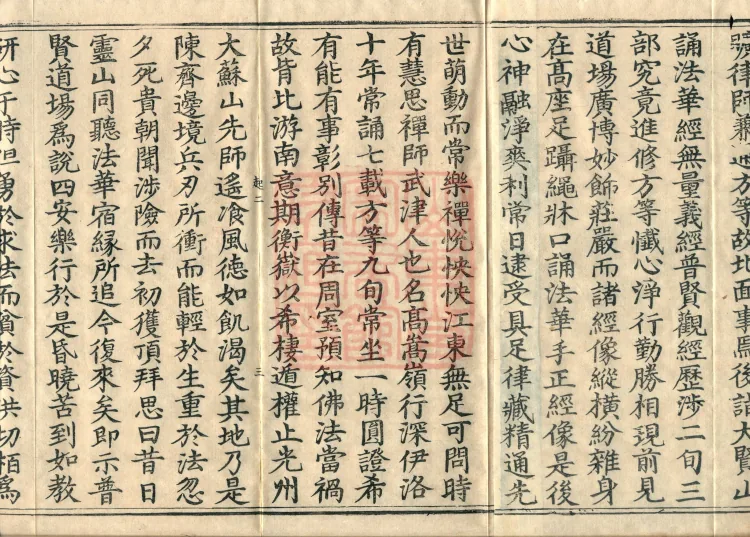 律師兼通方等故北面事焉後詣大賢山
誦法華經無量義經普賢觀經歷涉二旬三
部究竟進修方等懺心淨行勤勝相現前見
道場廣博妙飾莊嚴而諸經像縱橫紛雜身
在高座足躡繩牀口誦法華手正經像是後
心神融淨爽利常日逮受具足律藏精通先
世萌動而常樂禪悅怏怏江東無足可問時
有慧思禪師武津人也名高嵩嶺行深伊洛
十年常誦七載方等九旬常坐一時圓證希
有能有事彰別傳昔在周室預知佛法當禍
故背北游南意期衡嶽以希棲遁權止光州
起二
三
大蘇山先師遙飡風德如飢渴矣其地乃是
陳齊邊境兵刃所衝而能輕於生重於法忽
夕死貴朝聞涉險而去初獲頂拜思曰昔日
靈山同聽法華宿緣所追今復來矣即示普
賢道場為說四安樂行於是昏曉苦到如教
研心于時但勇於求法而貧於資供切栢為